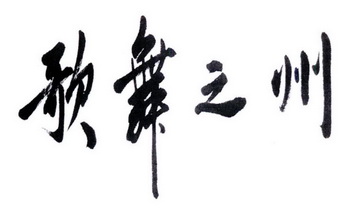 歌舞之州